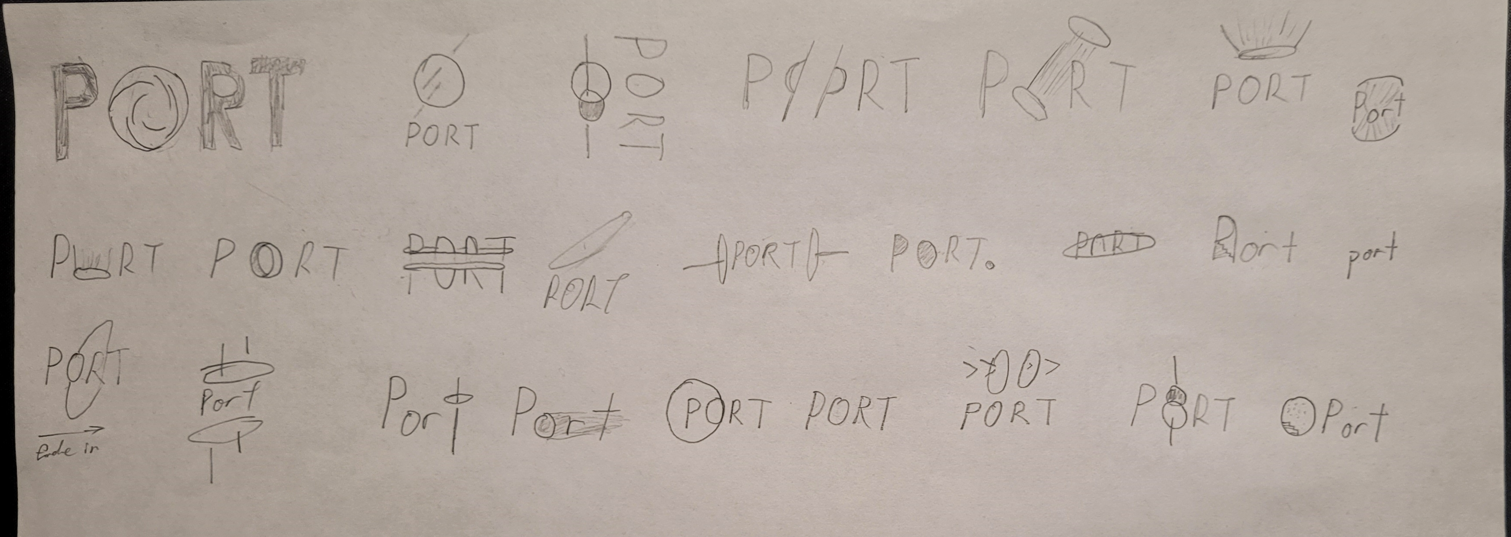 PORT PORT PORT PORT PORT PORT Port
PORT PORT PORT PORT PORT PORT. PORT Port port
PORT Port Port Port PORT PORT PORT PORT Port
fade in